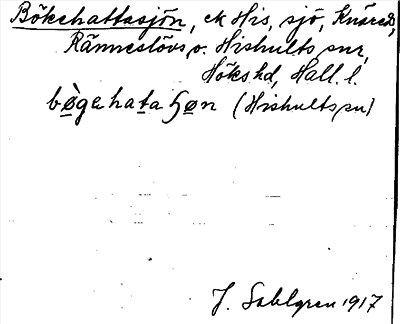 Bökehattasjön, ek His, sjö, Knäreds,
Ränneslövs o. Hishults snr,
Höks hd, Hall. l.
bø̀gahata ɧøn (Hishults sn)
J. Sahlgren 1917